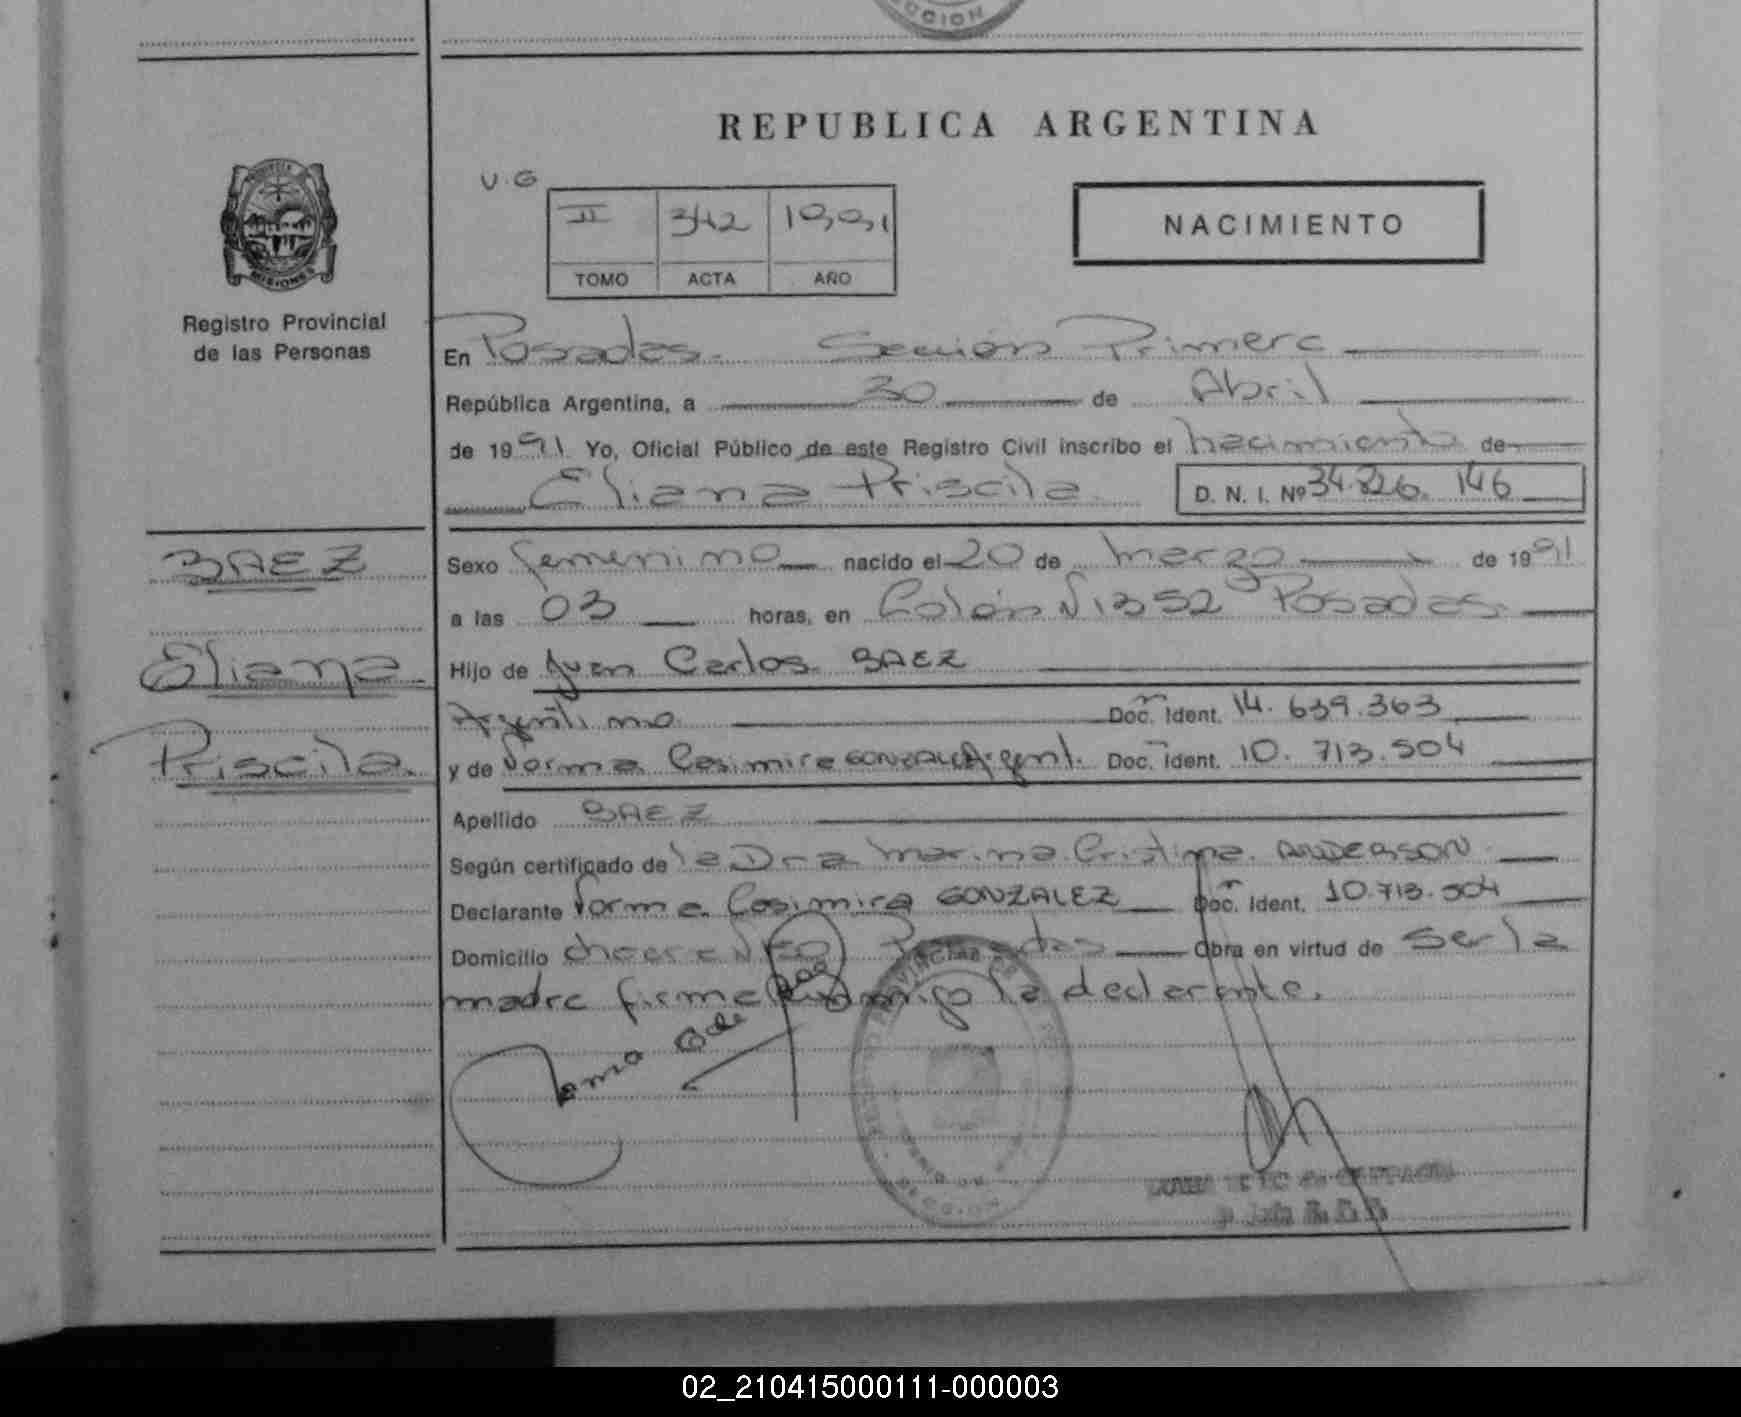 CCION
REPUBLICA ARGENTINA
U.G
II 342 1991
TOMO ACTA AÑO
NACIMIENTO
PROVINCIA
MISIONES
Registro Provincial
de las Personas
En Posadas. Sección Primera
República Argentina, a 30 de Abril
de 1991 Yo, Oficial Público de este Registro Civil inscribo el nacimiento de
Eliana Priscila. D. N. I. Nº 34.826.146
BAEZ
Eliana
Priscila.
Sexo femenino nacido el 20 de marzo de 1991
a las 03 horas, en Colón Nº1352 Posadas.
Hijo de Juan Carlos BAEZ
Argentino Doc. Ident. 14.639.363
y de Norma Casimira GONZALEZ Argent. Doc. Ident. 10.713.504
Apellido BAEZ
Según certificado de la Dra Marina Cristina ANDERSON
Declarante Norma Casimira GONZALEZ Doc. Ident. 10.713.504
Domicilio Posadas Obra en virtud de ser la
madre firma conmigo la declarante.
02_210415000111-000003